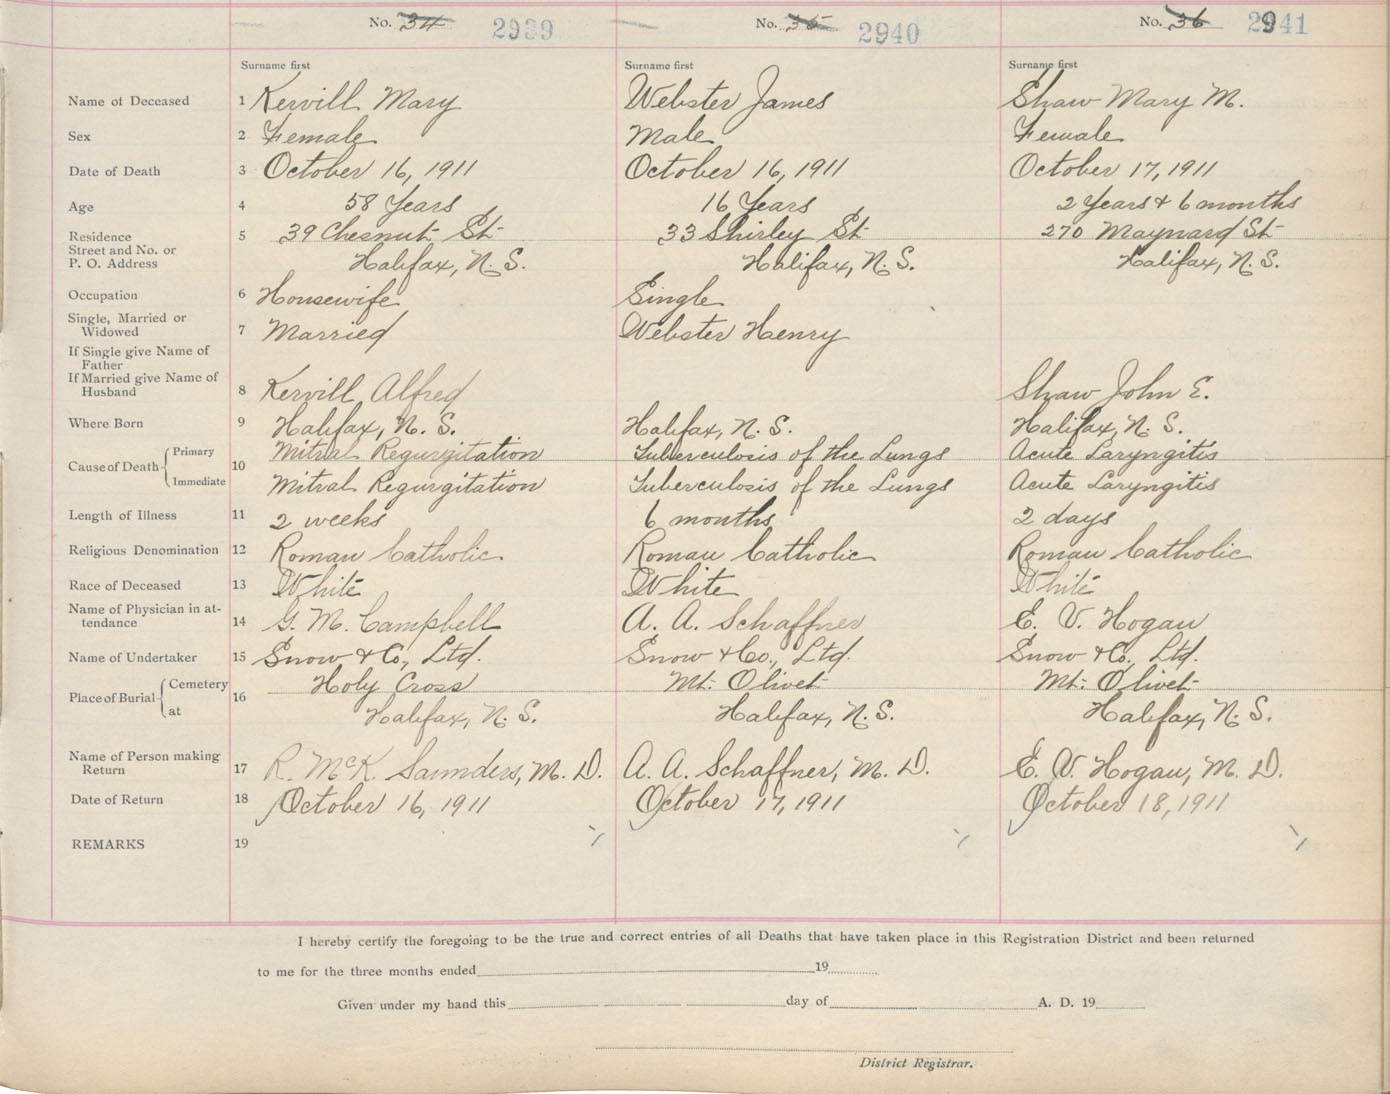 No. 34 2939 No. 35 2940 No. 36 2941
Surname first Surname first Surname first
Name of Deceased 1 Kervill Mary Webster James Shaw Mary M.
Sex 2 Female Male Female
Date of Death 3 October 16, 1911 October 16, 1911 October 17, 1911
Age 4 58 Years 16 Years 2 Years & 6 months
Residence 5 39 Chesnut St 33 Shirley St 270 Maynard St
Street and No. or
P. O. Address Halifax, N. S. Halifax, N. S. Halifax, N. S.
Occupation 6 Housewife Single
Single, Married or
Widowed 7 Married Webster Henry
If Single give Name of
Father
If Married give Name of
Husband 8 Kervill Alfred Shaw John E.
Where Born 9 Halifax, N. S. Halifax, N. S. Halifax, N. S.
Cause of Death Primary 10 Mitral Regurgitation Tuberculosis of the Lungs Acute Laryngitis
Immediate Mitral Regurgitation Tuberculosis of the Lungs Acute Laryngitis
Length of Illness 11 2 weeks 6 months 2 days
Religious Denomination 12 Roman Catholic Roman Catholic Roman Catholic
Race of Deceased 13 White White White
Name of Physician in at-
tendance 14 G. M. Campbell A. A. Schaffner E. V. Hogan
Name of Undertaker 15 Snow & Co., Ltd. Snow & Co., Ltd. Snow & Co. Ltd.
Place of Burial Cemetery 16 Holy Cross Mt. Olivet Mt. Olivet
at Halifax, N. S. Halifax, N. S. Halifax, N. S.
Name of Person making
Return 17 R. McK. Saunders, M. D. A. A. Schaffner, M. D. E. V. Hogan, M. D.
Date of Return 18 October 16, 1911 October 17, 1911 October 18, 1911
REMARKS 19
I hereby certify the foregoing to be the true and correct entries of all Deaths that have taken place in this Registration District and been returned
to me for the three months ended 19
Given under my hand this day of A. D. 19
District Registrar.